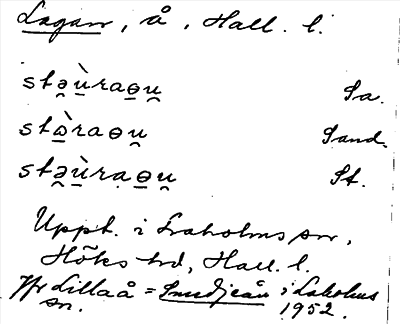 Lagan, å, Hall. l.
stə̯ù̱raɵ̱u̯ Sa.
stɷ̱̀raɵu̯ Sand.
stə̯ù̱raɵ̱u̯ St.
Uppt. i Laholms sn,
Höks hd, Hall. l.
Jfr Lillaå = Smedjeån i Laholms
sn. 1952.